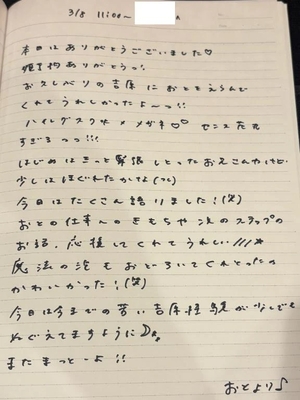 3/8 11:00~
本日はありがとうございました♡
指名予約ありがとうっ!
お久しぶりの吉原におとをえらんで
くれてうれしかったよ~っ!!
ハイレグスク水×メガネ♡♡ センス
すごろっっ!!!
はじめはきっと緊張しとったお兄さんやけど、
少しはほぐれたかな
今日はたくさん語りました!(笑)
おとの仕事へのきもちや次のステップの
お話、応援してくれてうれしい///★
魔法の泡もおどろいてくれとったの
かわいかった!(笑)
今日は今までの苦い吉原経験が少しでも
ぬぐえてますように
またまっとーよ!!
おとより♪